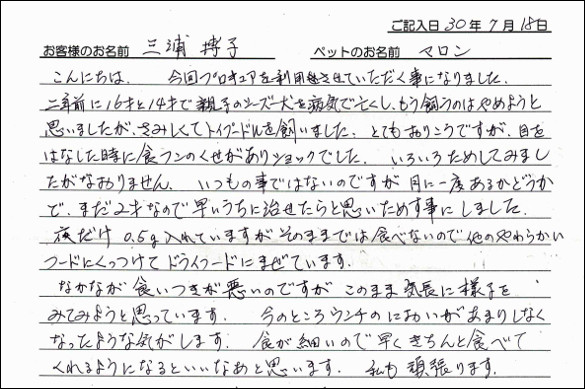 ご記入日 30年 7月 18日
お客様のお名前 三浦 搏子 ペットのお名前 マロン
こんにちは。 今回プロキュアを利用させていただく事になりました。
二年前に16才と14才で親子のシーズー犬を病気で亡くし、もう飼うのはやめようと
思いましたが、さみしくてトイプードルを飼いました。とてもおりこうですが、目を
はなした時に食フンのくせがありショックでした。 いろいろためしてみまし
たがなおりません。 いつもの事ではないのですが 月に一度あるかどうか
で、まだ2才なので早いうちに治せたらと思いためす事にしました。
夜だけ 0.5g入れていますがそのままでは食べないので他のやわらかい
フードにくっつけてドライフードにまぜています。
なかなが食いつきが悪いのですが このまま気長に様子を
みてみようと思っています。 今のところウンチのにおいがあまりしなく
なったような気がします。 食が細いので早くきちんと食べて
くれるようになるといいなあと思います。 私も頑張ります。